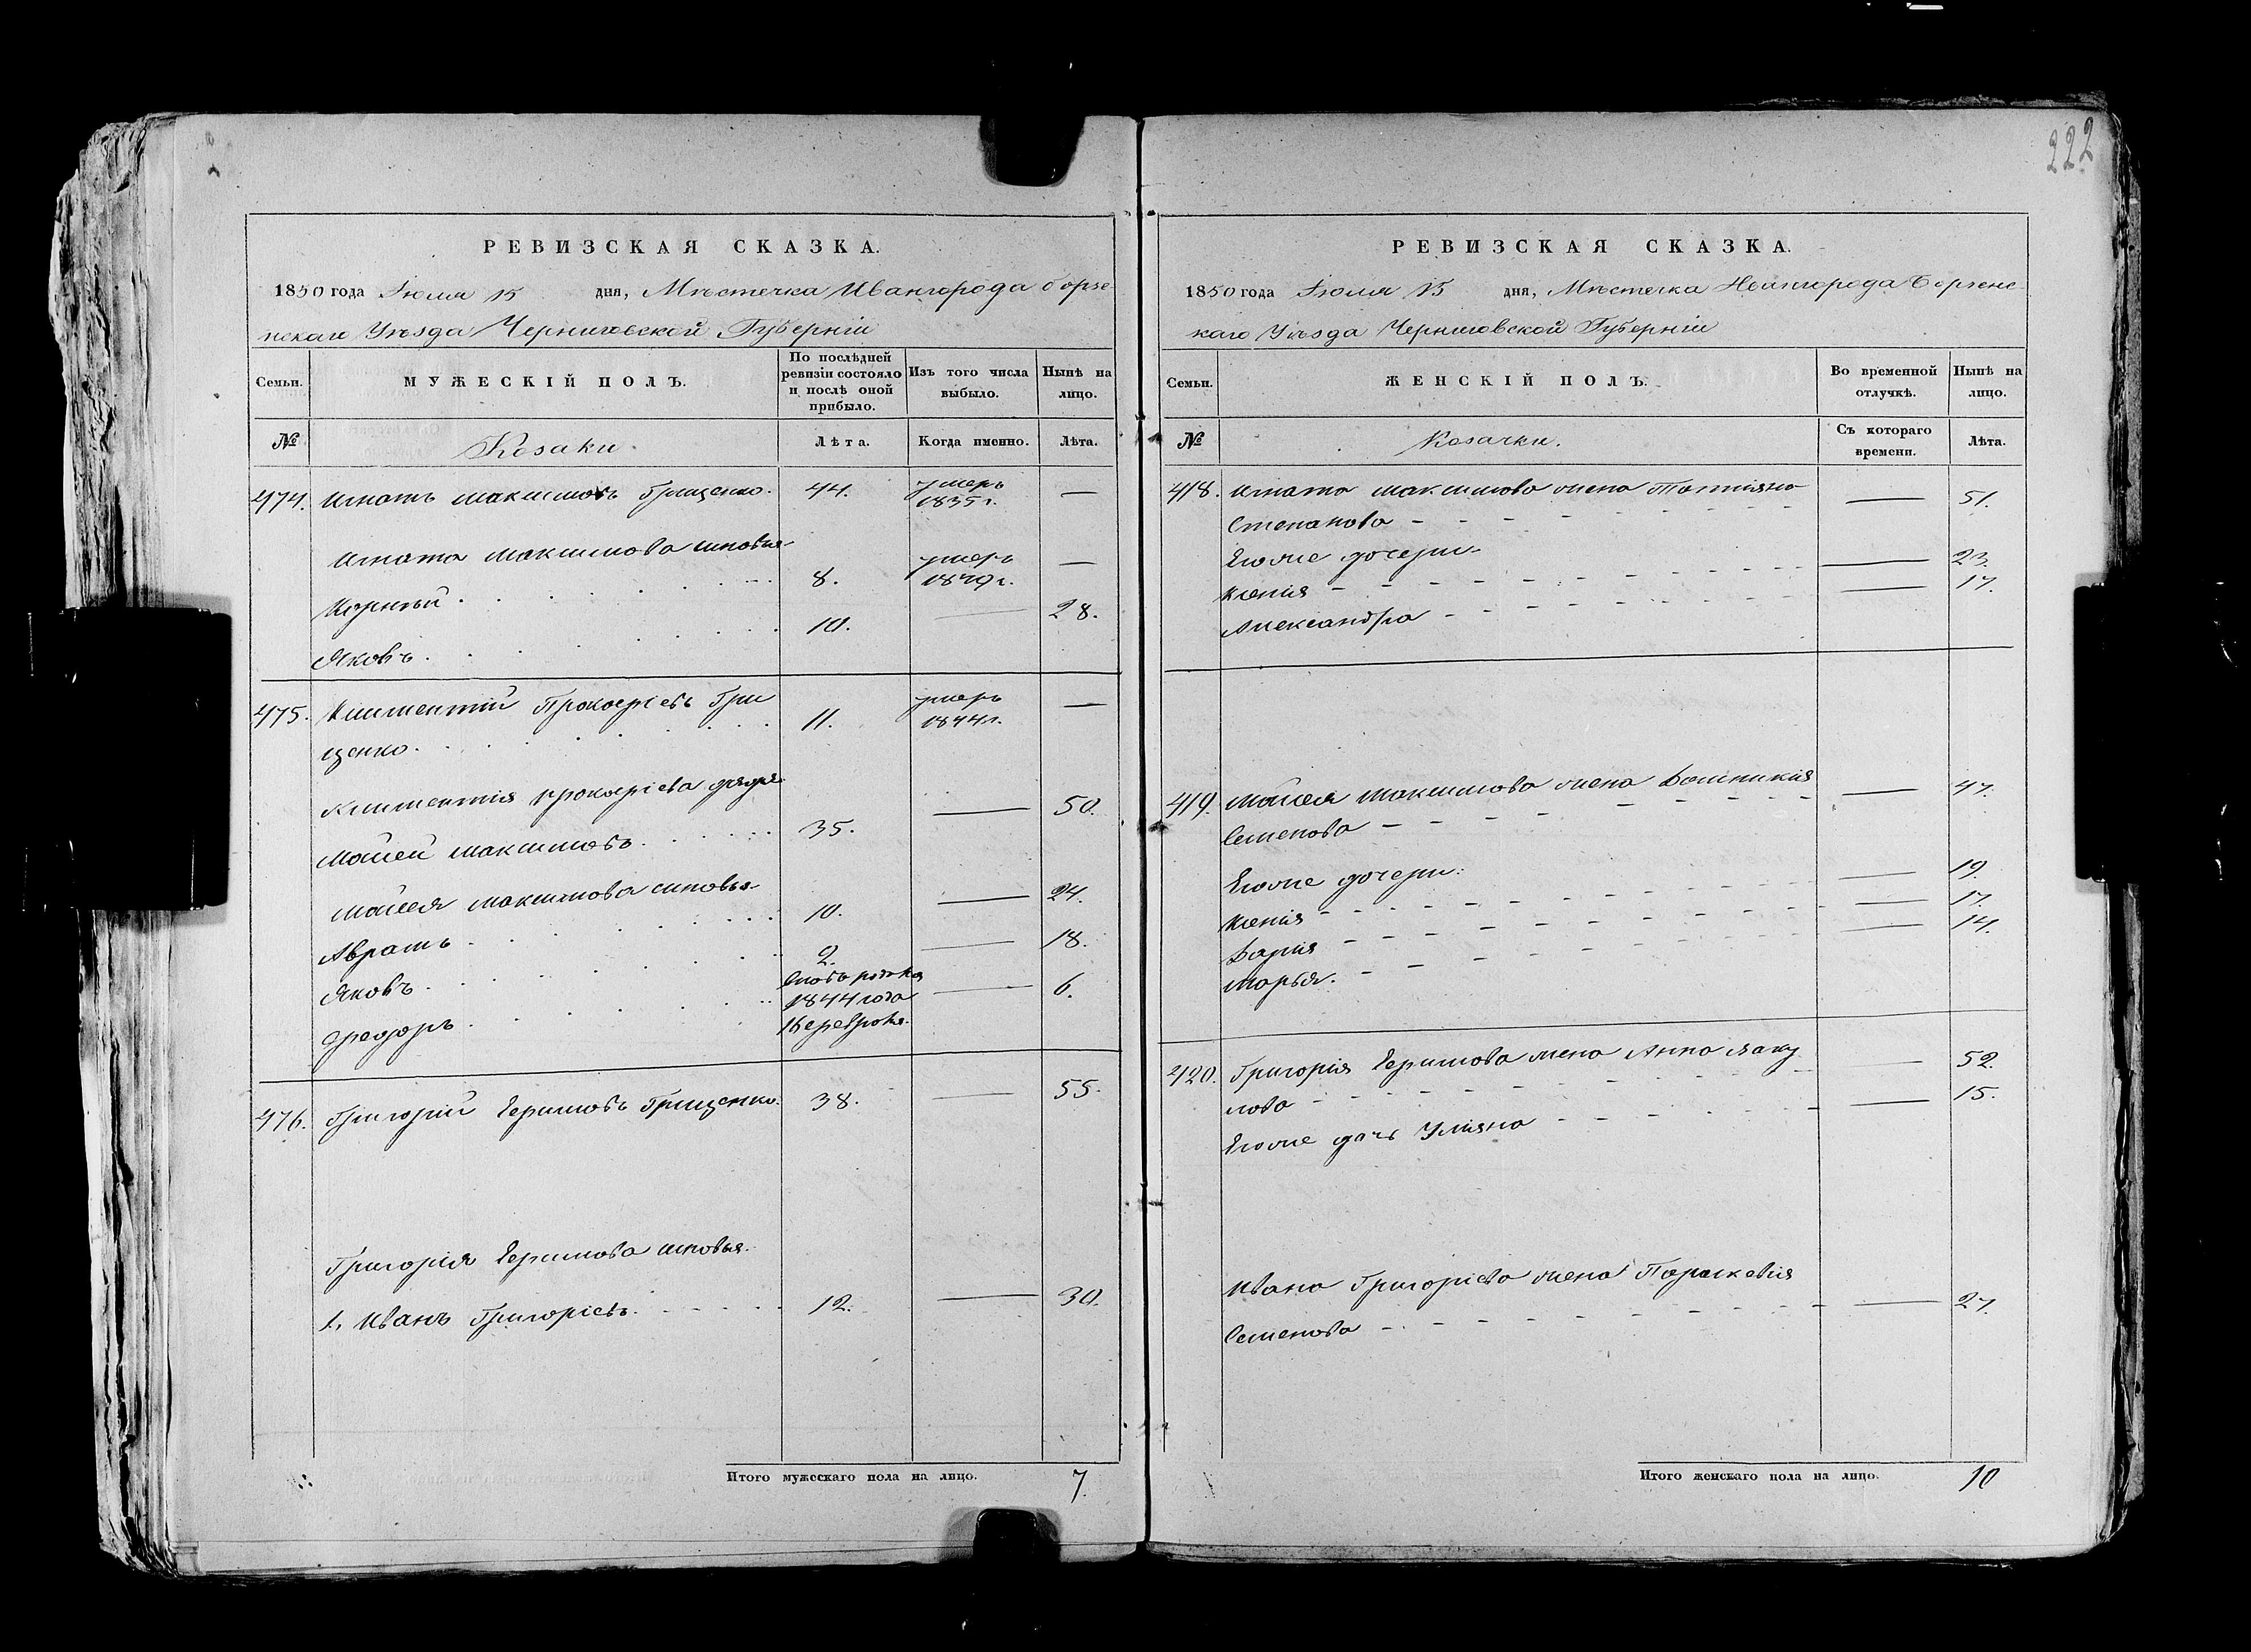 222
РЕВИЗСКАЯ СКАЗКА.
1850 года Іюля 15 дня, Мѣстечка Ивангорода Борзе
нскаго Уѣзда Черниговской Губерніи
Семьи.
МУЖЕСКІЙ ПОЛЪ.
По послѣдней ревизіи состояло и послѣ оной прибыло.
Изъ того числа выбыло.
Нынѣ на лицо.
№ Козаки. Лѣта. Когда именно. Лѣта.
474. Игнатъ Максимовъ Грищенко. 44. умеръ 1835 г. —
Игната Максимова сыновья
Корнѣй 8. умеръ 1849 г. —
Яковъ. 10. — 28.
475. Климентій Прокофіевъ Гри
щенко. 11. умеръ 1844 г. —
Климентія Прокофіева дядя
Мойсей Максимовъ. 35. — 50.
Мойсея Максимова сыновья
Аврамъ 10. — 24.
Яковъ. 2. — 18.
Феодоръ 1844 года — 6.
476. Григорій Ефимовъ Грищенко. 38. — 55.
Григорія Ефимова сыновья.
1, Иванъ Григоріевъ. 12. — 30.
Итого мужескаго пола на лицо. 7.
РЕВИЗСКАЯ СКАЗКА.
1850 года Іюля 15 дня, Мѣстечка Ивангорода Борзенс
каго Уѣзда Черниговской Губерніи
Семьи.
ЖЕНСКІЙ ПОЛЪ.
Во временной отлучкѣ.
Нынѣ на лицо.
№ Козачки. Съ котораго времени. Лѣта.
418. Игната Максимова жена Татіяна
Степанова — 51.
Егоже дочери
Ксенія — 23.
Александра — 17.
419. Мойсея Максимова жена Домникія
Семенова — 47.
Егоже дочери:
Ксенія — 19.
Дарія — 17.
Марья. — 14.
420. Григорія Ефимова жена Анна Яку
лова — 52.
Егоже дочь Уліяна — 15.
Ивана Григоріева жена Параскевія
Семенова — 27.
Итого женскаго пола на лицо. 10